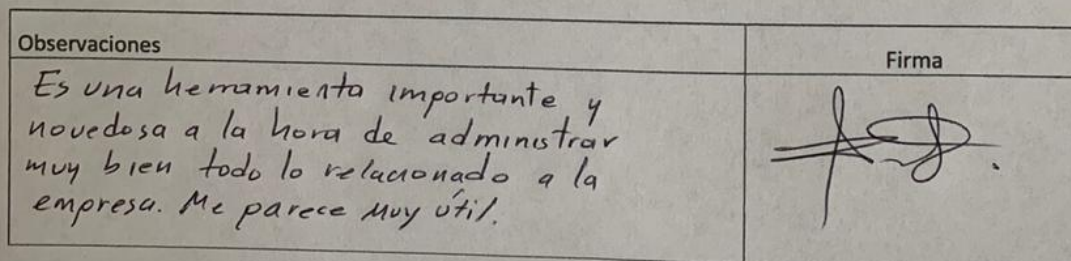 Observaciones
Firma
Es una herramienta importante y
novedosa a la hora de administrar
muy bien todo lo relacionado a la
empresa. Me parece muy útil.